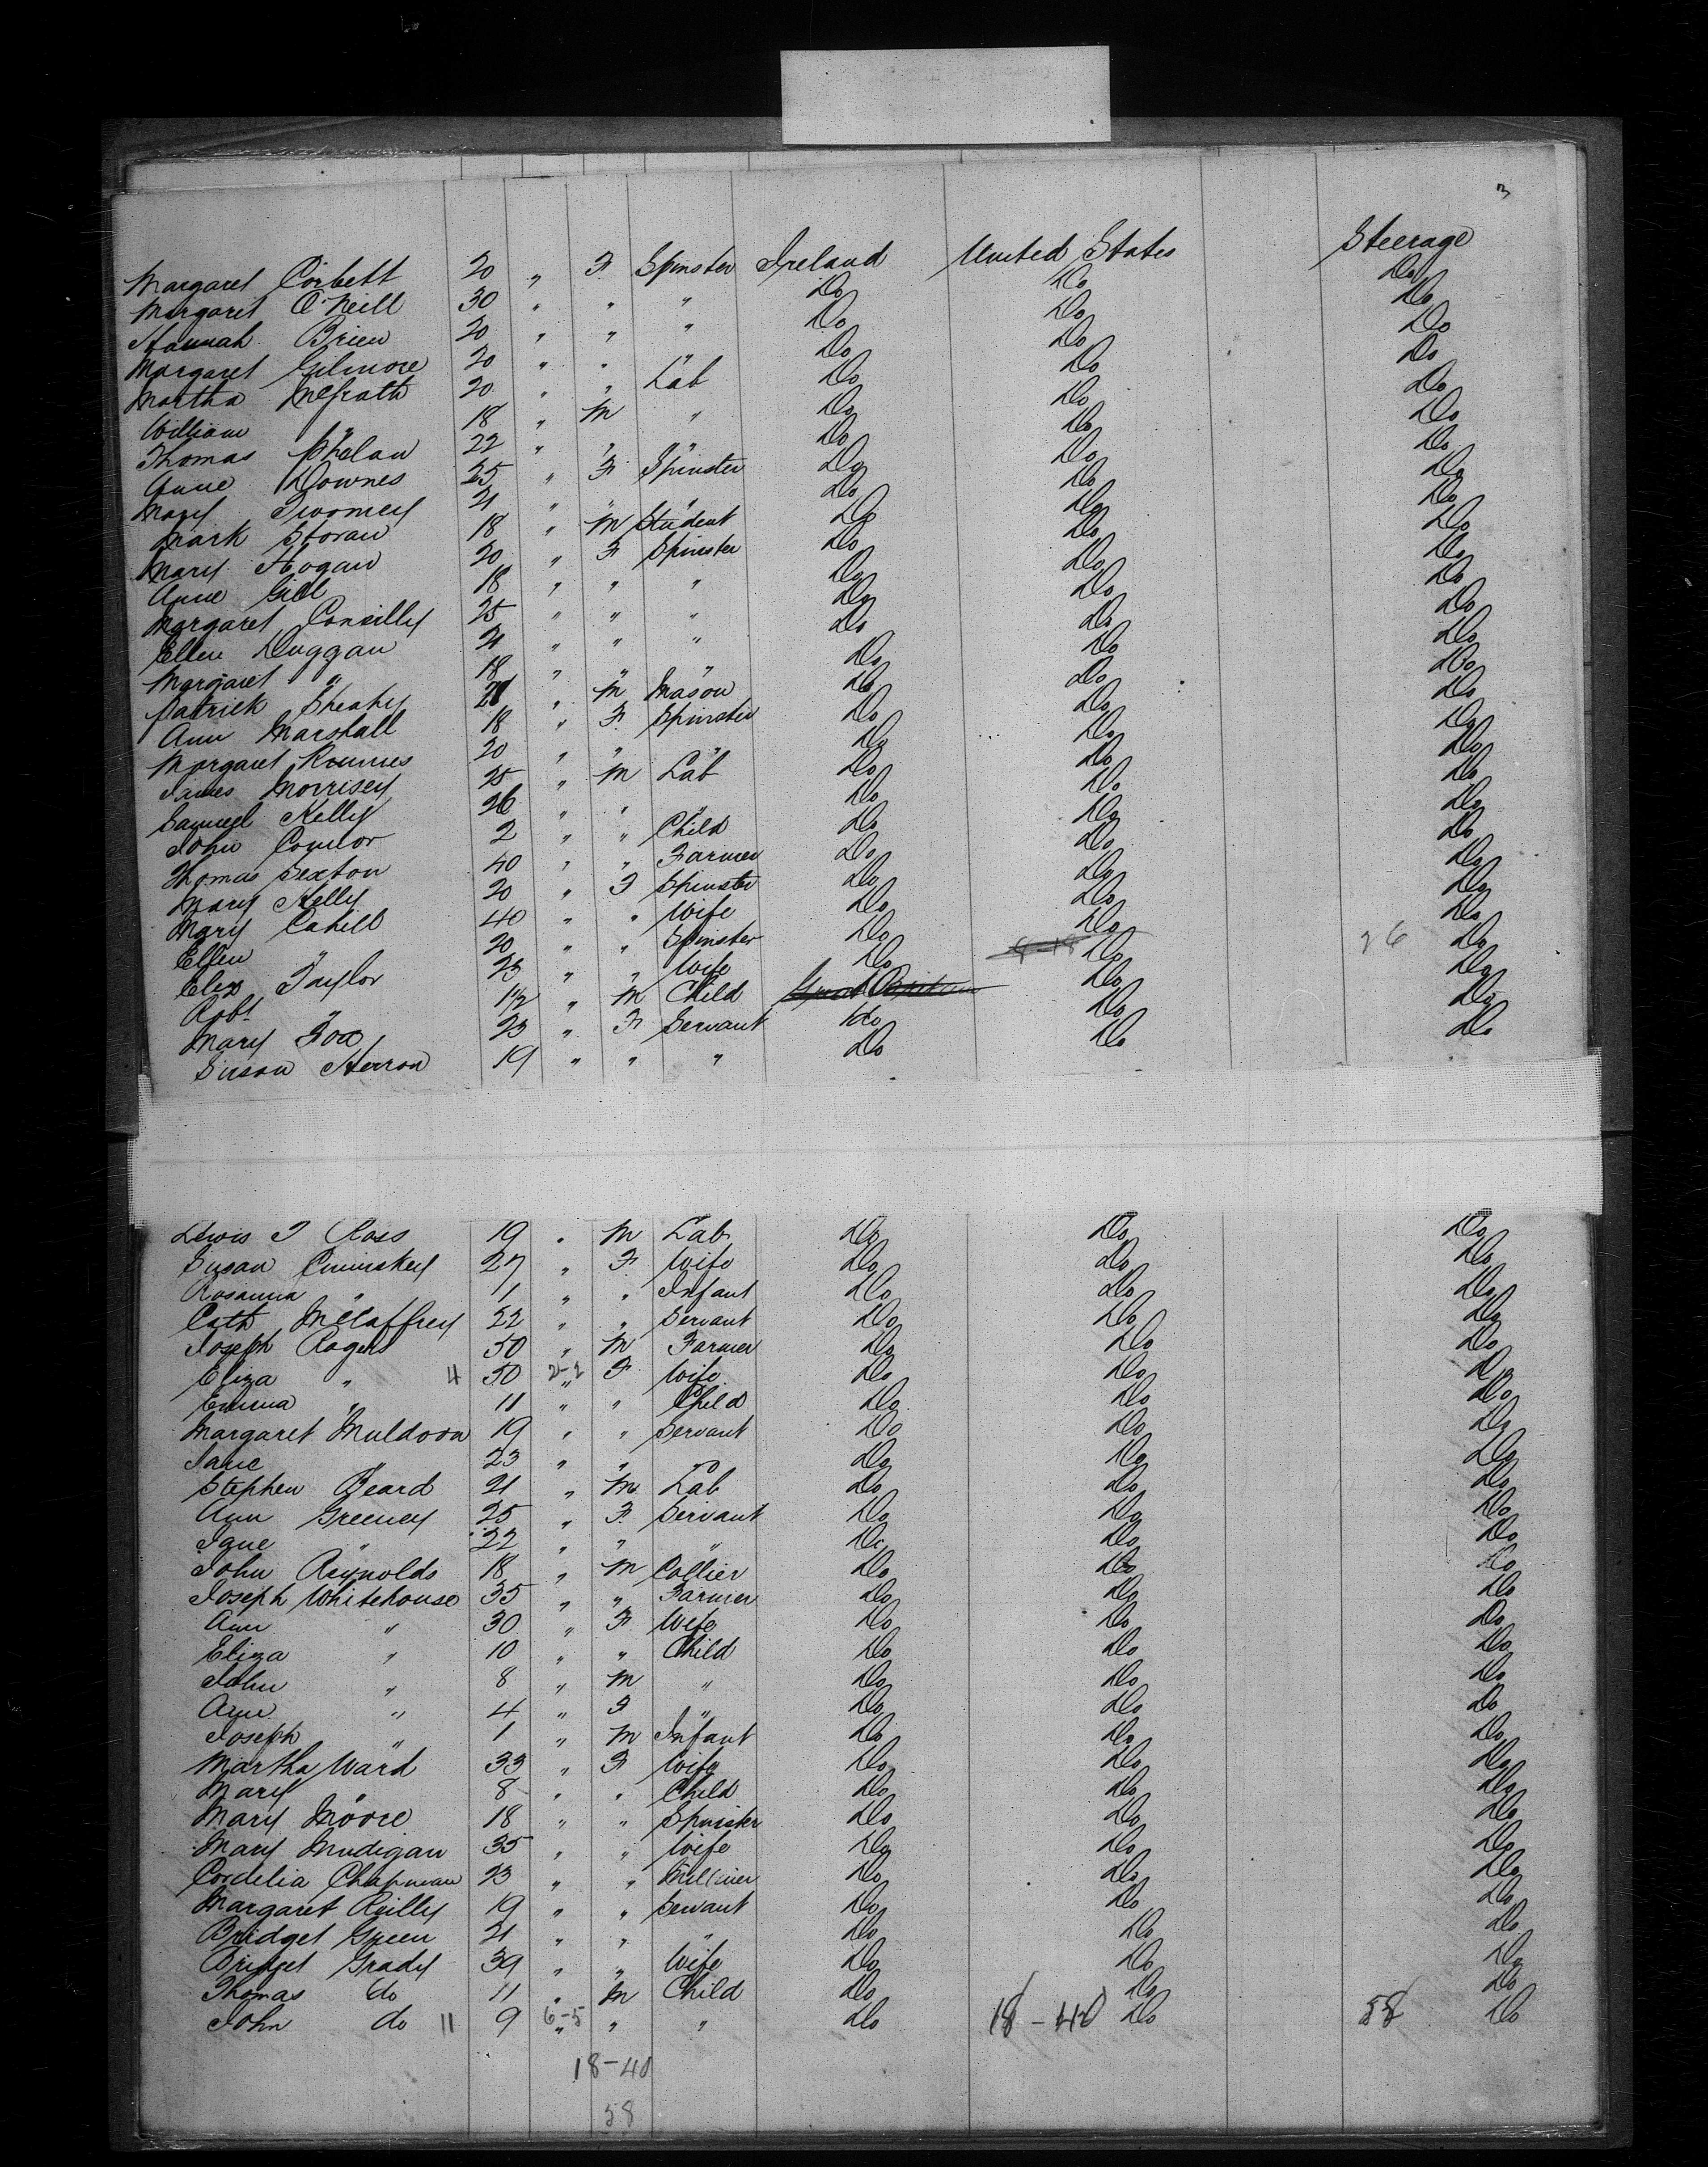 3
Margaret Corbett 20 " F Spinster Ireland United States Steerage
Margaret O'Neill 30 " " " Do Do Do
Hannah Brien 20 " " " Do Do Do
Margaret Gilmore 20 " " " Do Do Do
Martha McGrath 20 " " Lab Do Do Do
William " 18 " M " Do Do Do
Thomas Phelan 22 " " " Do Do Do
Anne Downes 25 " F Spinster Do Do Do
Mary Twomey 21 " " " Do Do Do
Mark Storan 18 " M Student Do Do Do
Mary Hogan 20 " F Spinster Do Do Do
Anne Gill 18 " " " Do Do Do
Margaret 25 " " " Do Do Do
Ellen Duggan 21 " " " Do Do Do
Margaret " 18 " " " Do Do Do
Patrick Sheahy " M Mason Do Do Do
Ann Marshall 18 " F Spinster Do Do Do
Margaret 20 " " " Do Do Do
James Morrisey 25 " M Lab Do Do Do
Samuel Kelly 26 " " " Do Do Do
John Connor 2 " " Child Do Do Do
Thomas Sexton 40 " " Farmer Do Do Do
Mary Kelly 20 " F Spinster Do Do Do
Mary Cahill 40 " " Wife Do Do Do
Ellen " 20 " " Spinster Do Do 26 Do
Eliza Taylor 23 " " Wife Do Do Do
Robt " 1½ " M Child Great Britain Do Do
Mary Fox 23 " F Servant Do Do Do
Susan Herron 19 " " " Do Do
Lewis J Ross 19 " M Lab Do Do Do
Susan Cuminskey 27 " F Wife Do Do Do
Rosanna " 1 " " Infant Do Do Do
Cath McCaffrey 22 " " Servant Do Do Do
Joseph Rogers 50 " M Farmer Do Do Do
Eliza " 4 50 2-2 " F Wife Do Do Do
Emma " 11 " " Child Do Do Do
Margaret Muldoon 19 " " Servant Do Do Do
Jane " 23 " " " Do Do Do
Stephen Beard 21 " M Lab Do Do Do
Ann Greeney 25 " F Servant Do Do Do
Jane " 22 " " " Do Do Do
John Reynolds 18 " M Collier Do Do Do
Joseph Whitehouse 35 " " Farmer Do Do Do
Ann " 30 " F Wife Do Do Do
Eliza " 10 " " Child Do Do Do
John " 8 " M " Do Do Do
Ann " 4 " F " Do Do Do
Joseph " 1 " M Infant Do Do Do
Martha Ward 33 " F Wife Do Do Do
Mary " 8 " " Child Do Do Do
Mary Moore 18 " " Spinster Do Do Do
Mary Mudigan 35 " " Wife Do Do Do
Cordelia Chapman 23 " " Milliner Do Do Do
Margaret Reilly 19 " " Servant Do Do Do
Bridget Green 21 " " " Do Do Do
Bridget Grady 39 " " Wife Do Do Do
Thomas do 11 " M Child Do Do Do
John do 11 9 6-5 " " " Do 18-40 Do 58 Do
18-40
58